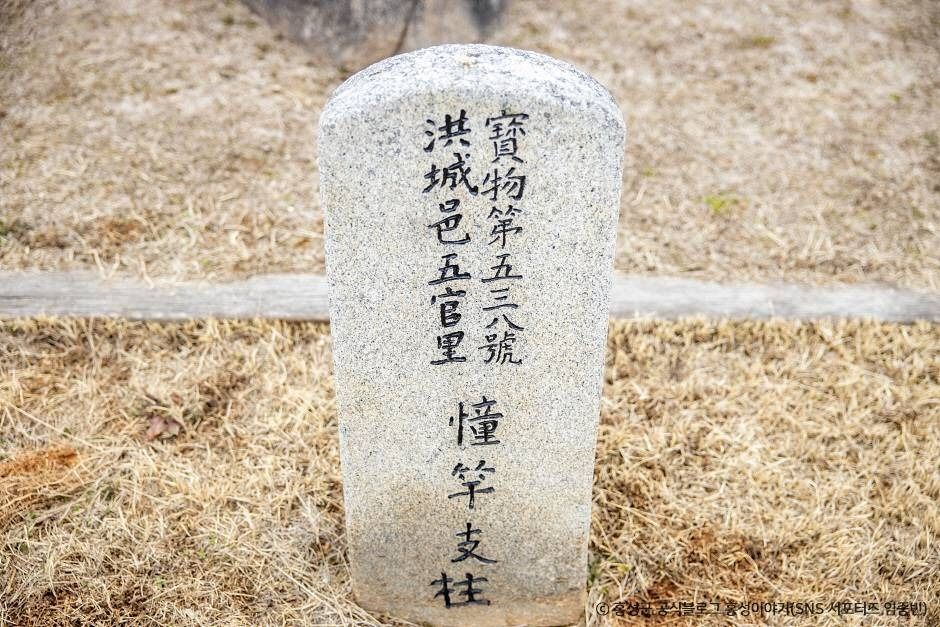 寶物第五三八號
洪城邑五官里
憧竿支柱
© 홍성군 공식블로그 홍성이야기(SNS 서포터즈 임중빈)